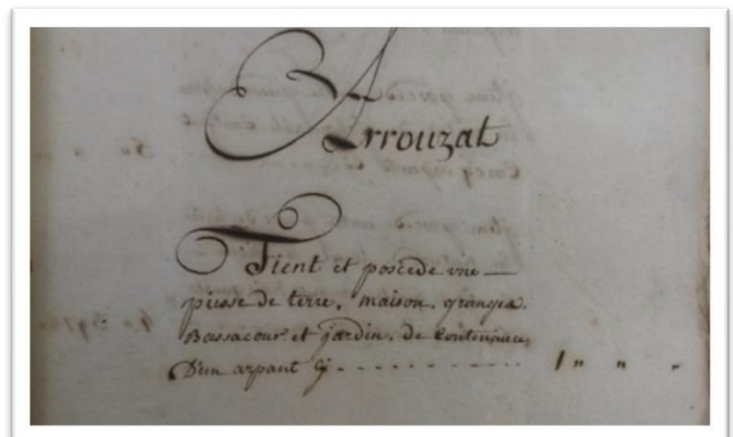 Arrouzat
Tient et possede une
piesse de terre, maison, granges.
Bassacour et jardin, de Contenance,
D'un arpant Cy - - - - - - - - - - 1 " " "